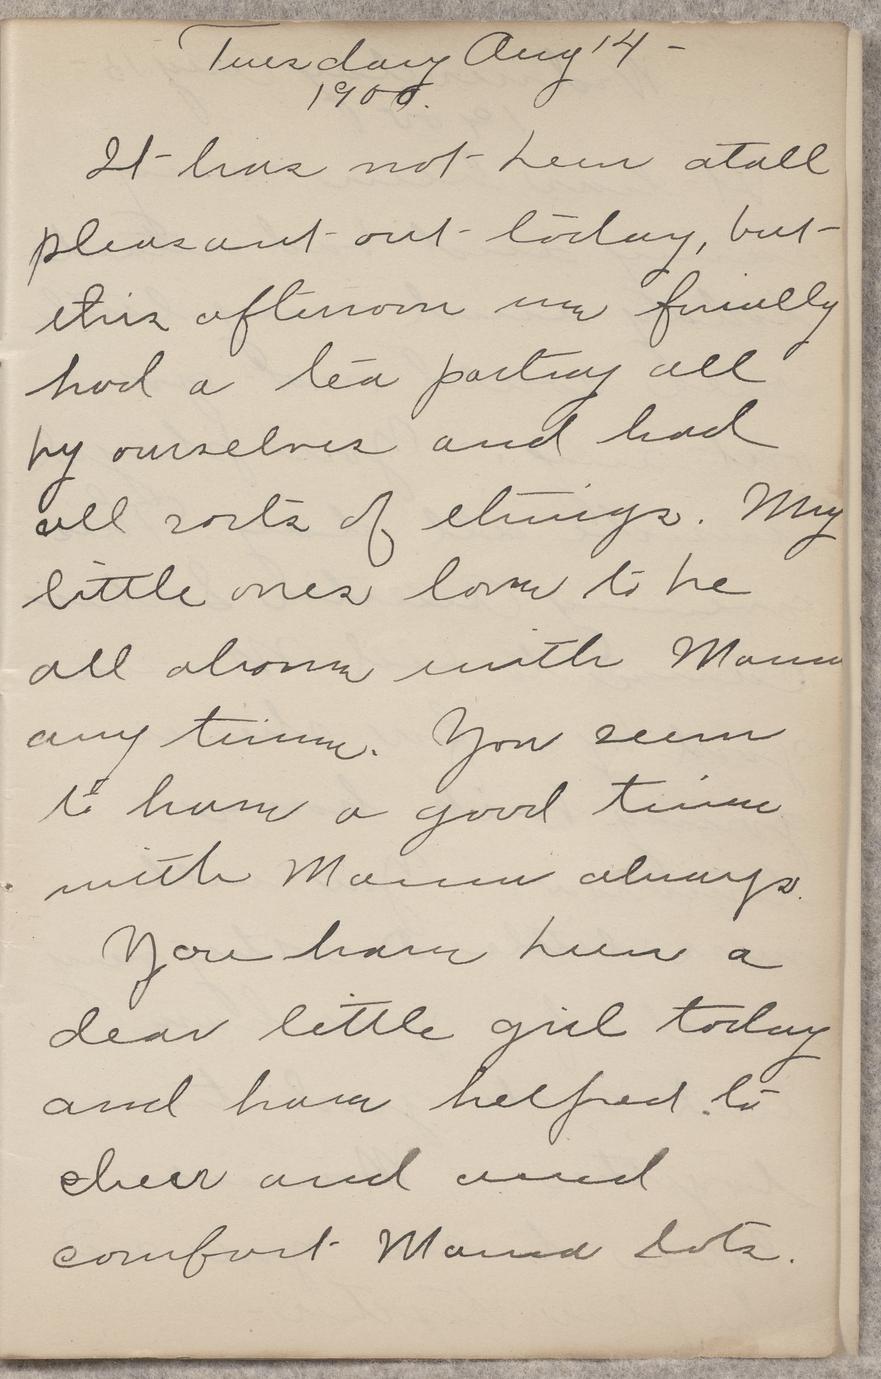 Tuesday Aug 14 -
1900.
It has not been atall
pleasant out today, but
this afternoon we finally
had a tea party all
by ourselves and had
all sorts of things. My
little ones love to be
all alone with Mama
any time. You seem
to have a good time
with Mama always.
You have been a
dear little girl today
and have helped to
cheer and and
comfort Mama lots.